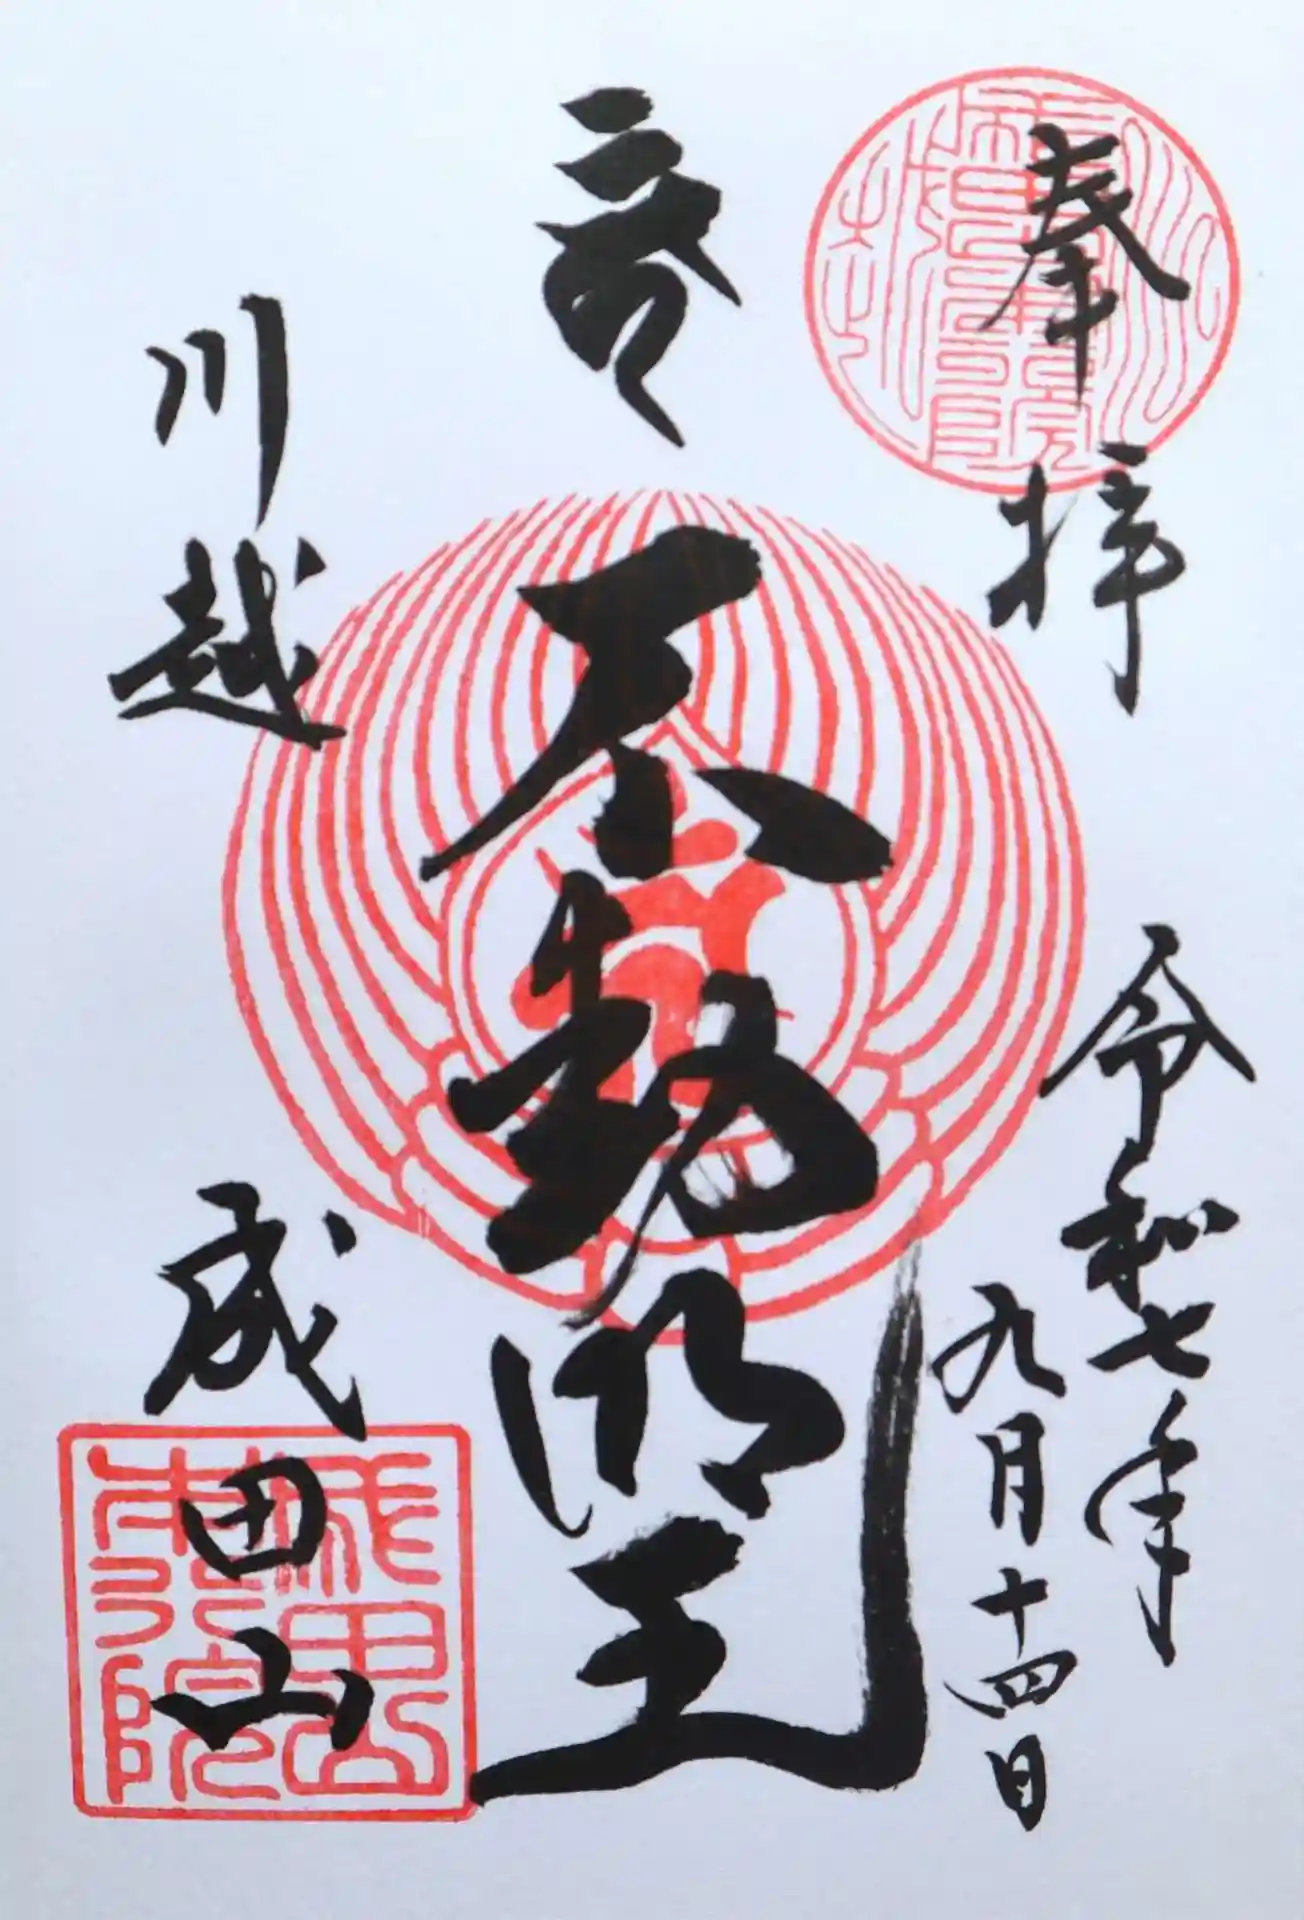 奉拝
令和七年
九月十四日
不動明王
川越
成田山
成田山
本行院